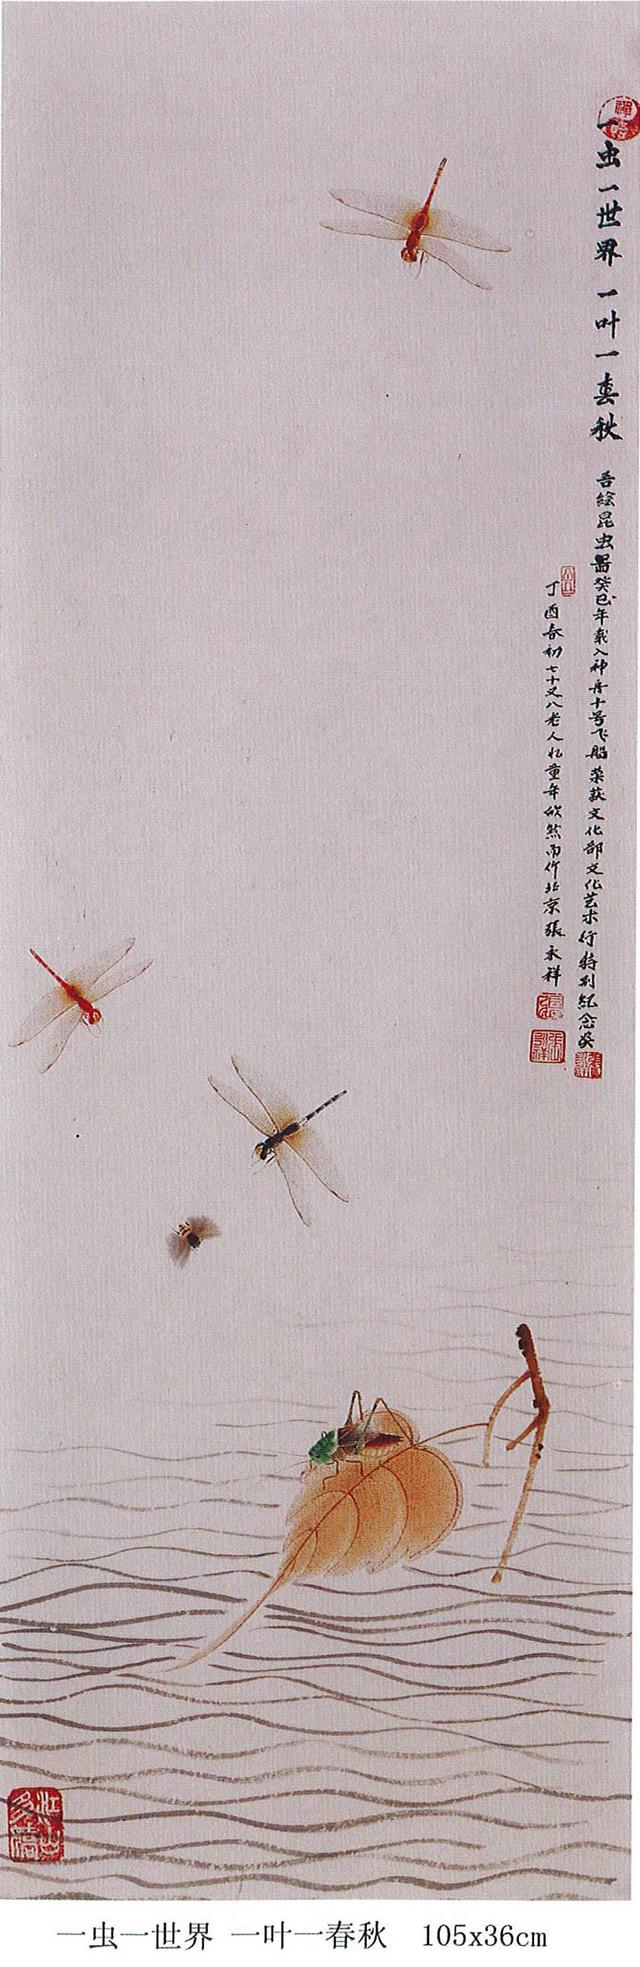 一虫一世界 一叶一春秋
吾绘昆虫图癸巳年载入神舟十号飞船荣获文化部文化艺术行特别纪念奖
丁酉春初七十又八老人忆童年欣然而作北京張永祥
江山多嬌
一虫一世界 一叶一春秋 105x36cm